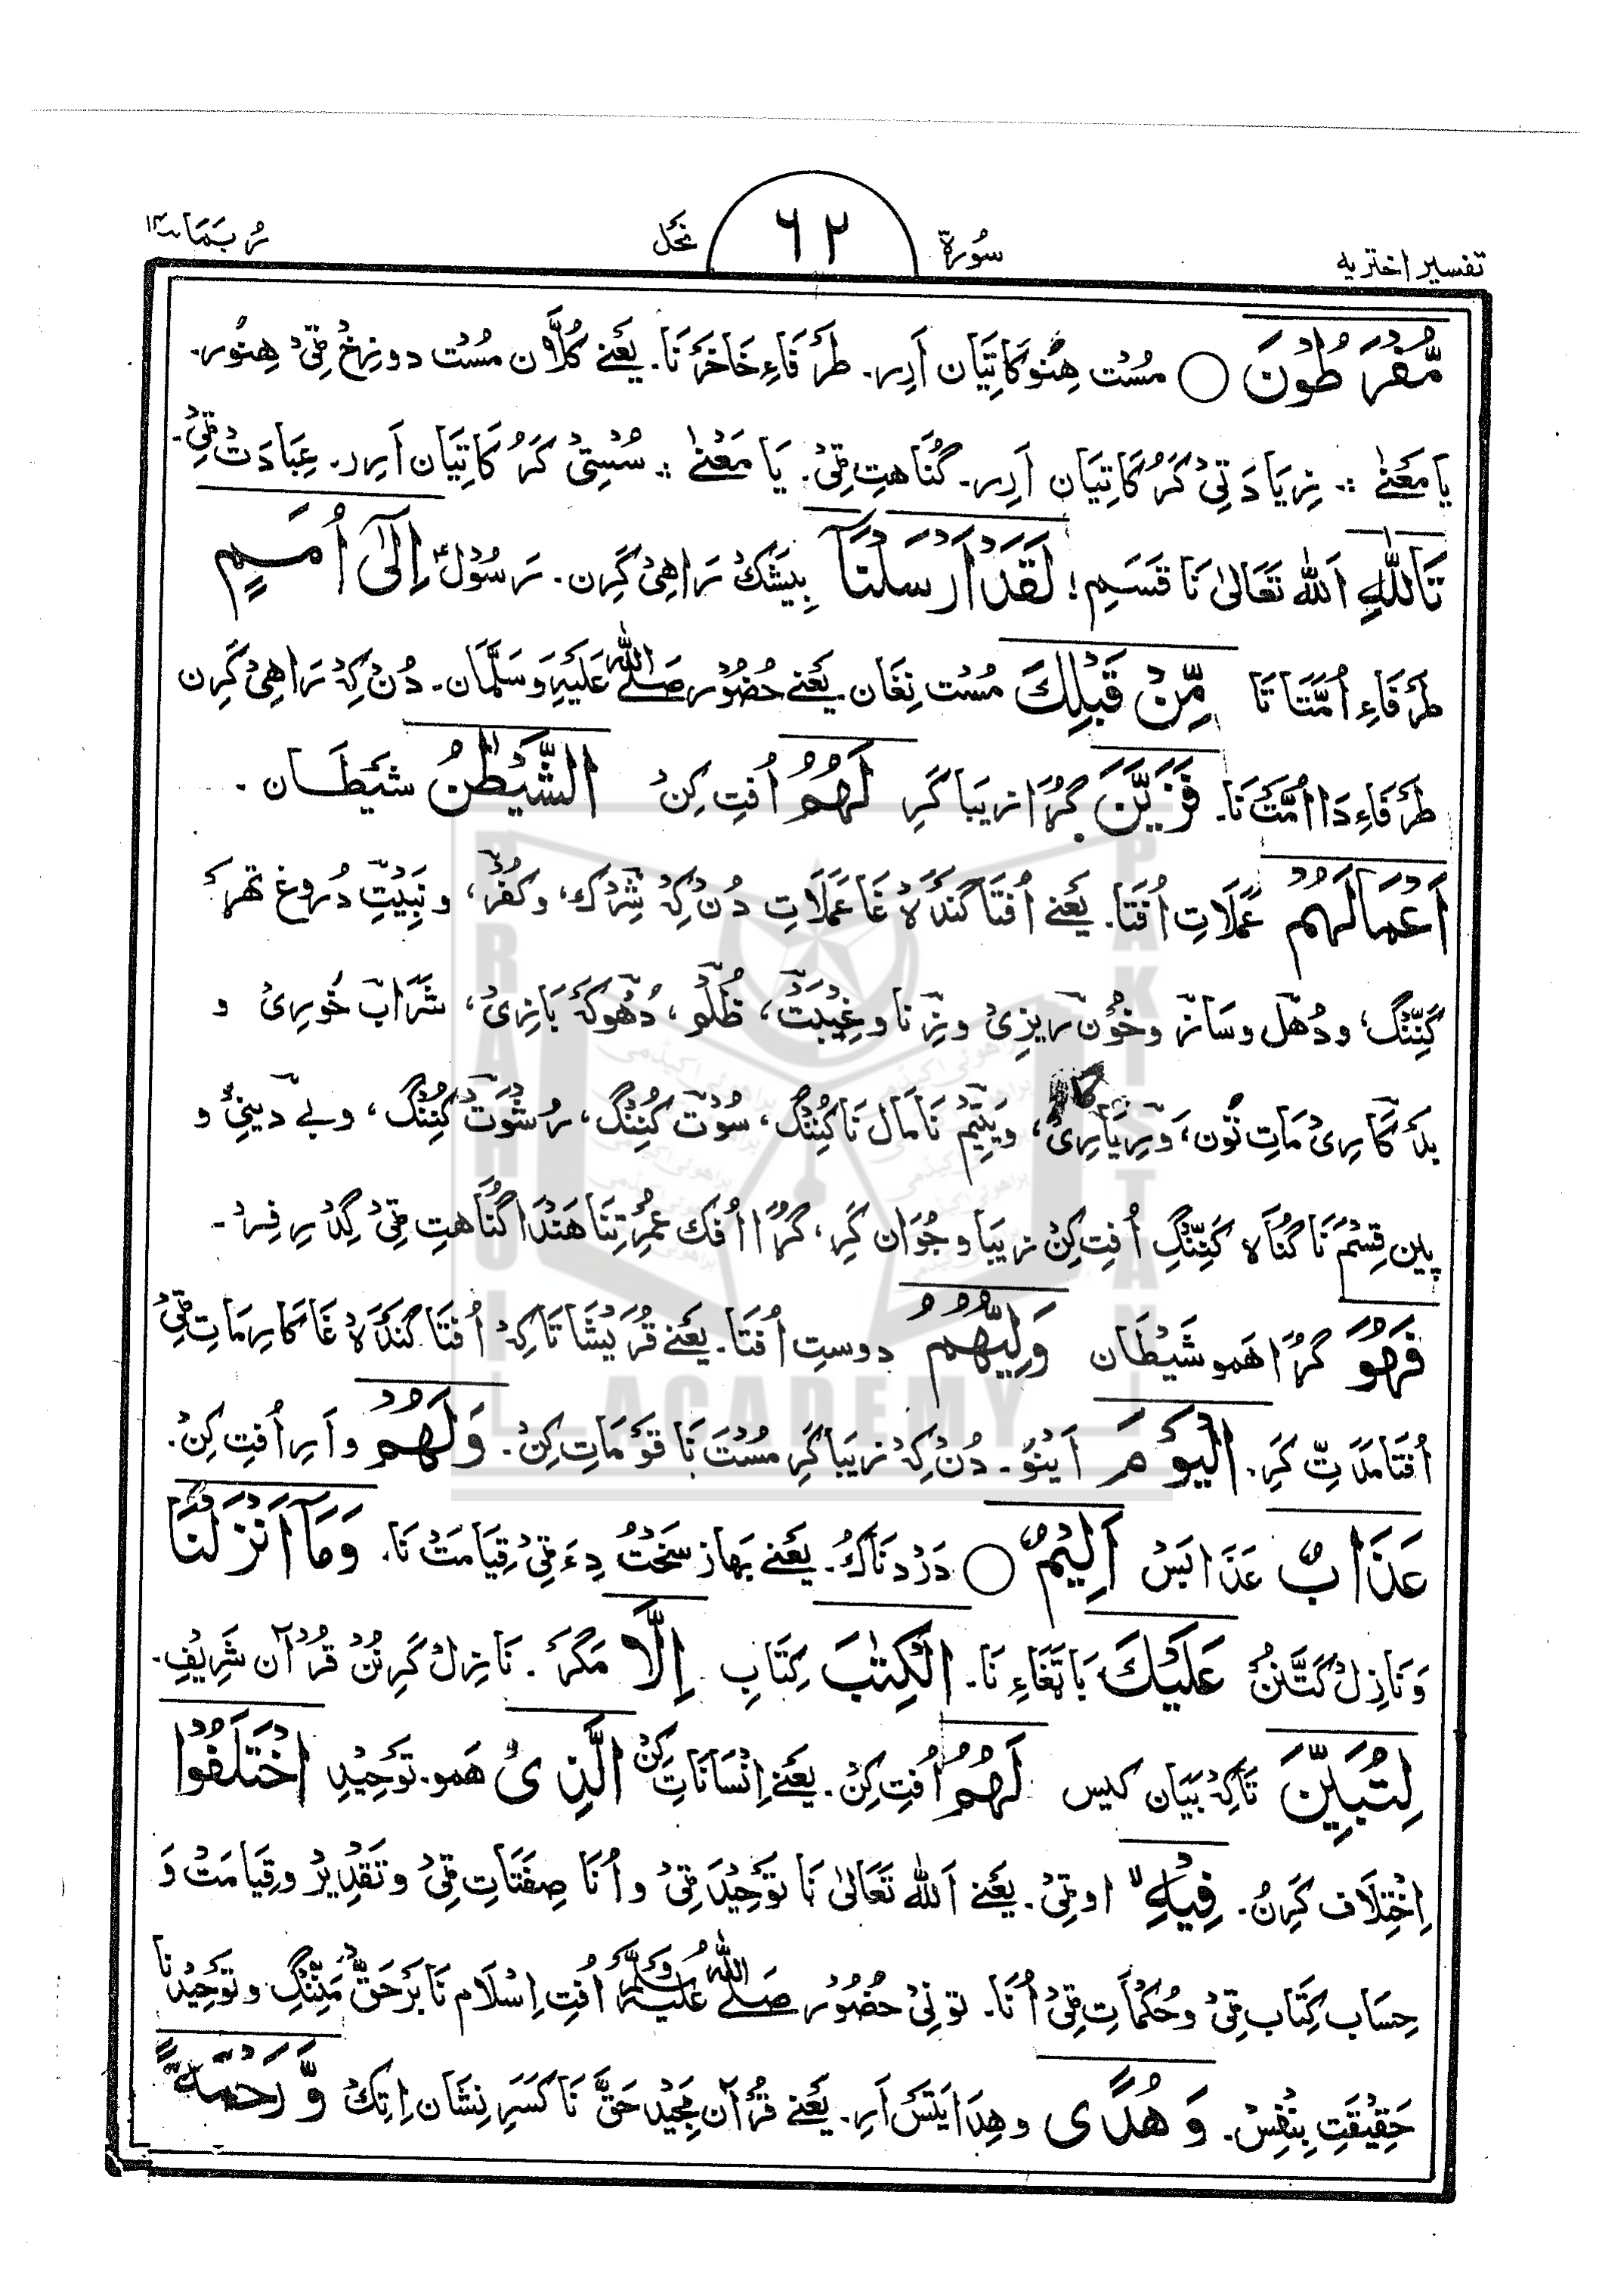 تفسیر اختریه
سُورة
۶۲
نَحل
رُبَمَا ۱۴
مُّفْرَطُوْنَ ○ مُسْت هِنُوکَاتِیَان اَرِر۔ طَرَفَاءِ خَاخَرْنَا۔ یَعْنے کُلَّان مُسْت دوزِخْ ٹِیْ هِنُور۔
یا مَعْنٰے ؞ زِیَادَتِیْ کَرُکَاتِیَان اَرِر۔ گُنَاهتِ ٹِیْ۔ یَا مَعْنٰے ؞ سُسْتِیْ کَرُکَاتِیَان اَرِر۔ عِبَادَتْ ٹِیْ۔
تَاللّٰهِ اَللّٰه تَعَالیٰ نَا قَسَمِ؛ لَقَدْ اَرْسَلْنَآ بِیْشَكْ رَاهِیْ کَرِن۔ رَسُوْل اِلٰٓی اُمَمٍ
طَرَفَاءِ اُمَّتَاتَا مِّنْ قَبْلِكَ مُسْت نِغَان۔ یَعْنے حُضُوْر صَلَّے اللّٰه عَلَیْهِ وَسَلَّمَان۔ دُنْ کِهْ رَاهِیْ کَرِن
طَرَفَاءِ دَا اُمَّتْ نَا۔ فَزَیَّنَ گُڑَا زیبَا کَرِ لَهُمُ اُفتِ کِنْ الشَّیْطٰنُ شَیْطَان۔
اَعْمَالَهُمْ عَمَلَاتِ اُفْتَا۔ یَعْنے اُفْتَا گَنْدَهْ غَا عَمَلَاتِ دُنْ کِهْ شِرْك، و کُفْر، و نَبِیْتِ دُروغ تهر
کَنِّنْگ، و دُهْل و سَاز و خُوْن رِیزِیْ و زِنَا و غِیْبَتْ، ظُلْم، دُهْوکَه بَازِیْ، شَرَابْ خُورِیْ و
بَدْ کَارِیْ مَاتِ تُون، وَ رِیَارِیْ، و یَتِیْم نَا مَال نَا کُنِنْگ، سُوْت کُنِنْگ، رُشْوَتْ کُنِنْگ، و بے دِینِیْ و
پِلِین قِسْم نَا گُنَاه کَنِّنْگِ اُفتِ کِنْ زیبَا و جُوَان کَرِ، گُڑَا اُفك عُمْر تِنَا هَنْدَا گُنَاهتِ ٹِیْ گِدْرِفِر۔
فَهُوَ گُڑَا هَمو شَیْطَان وَلِیُّهُمُ دوستِ اُفْتَا۔ یَعْنے قُرَیْشَاتَا کِهْ اُفْتَا گَنْدَهْ غَا کَارِمَاتِ ٹِیْ
اُفْتَا مَدَتِّ کَرِ۔ الْیَوْمَ اَیْنُو۔ دُنْ کِهْ زیبَا کَرِ مُسْتَ نَا قَوْمَاتِ کِنْ۔ وَلَهُمْ و اَرِ اُفتِ کِنْ۔
عَذَابٌ عَذَابَسْ اَلِیْمٌ ○ دَرْدنَاكُ۔ یَعْنے بَهاز سَخْتْ دِءَ ٹِیْ قِیَامَتْ نَا۔ وَمَآ اَنْزَلْنَا
وَ نَازِلْ کَتَّنُنْ عَلَیْكَ بَاتَغَاءِ نَا۔ الْکِتٰبَ کِتَابِ اِلَّا مَگَر۔ نَازِلْ کَرِنُنْ قُرْآن شَرِیْفِ۔
لِتُبَیِّنَ تَاکِهْ بَیَان کیس لَهُمُ اُفتِ کِنْ۔ یَعْنے اِنْسَانَاتِ کِنْ الَّذِی هَمو۔ تَوْحِیْدِ اخْتَلَفُوْا
اِخْتِلَاف کَرِنُ۔ فِیْهِ اوٹِیْ۔ یَعْنے اَللّٰه تَعَالیٰ نَا تَوْحِیْدَ ٹِیْ و اُنَا صِفَتَاتِ ٹِیْ و تَقْدِیْر و قِیَامَتْ وَ
حِسَاب کِتَاب ٹِیْ و حُکْمَاتِ ٹِیْ اُنَا۔ تو نِیْ حُضُوْر صَلَّے اللّٰه عَلَیْهِ وَسَلَّم اُفتِ اِسْلَام نَا بَرْحَقْ مَنِّنْگ و تَوْحِیْدنَا
حَقِیْقَتِ بِنْفِسْ۔ وَ هُدًی و هِدَایَتَسْ اَرِ۔ یَعْنے قُرْآن مَجِیْد حَقْ نَا کَسَرِ نِشَان اِتِكْ وَّ رَحْمَةً
BRAHUI
ACADEMY
PAKISTAN